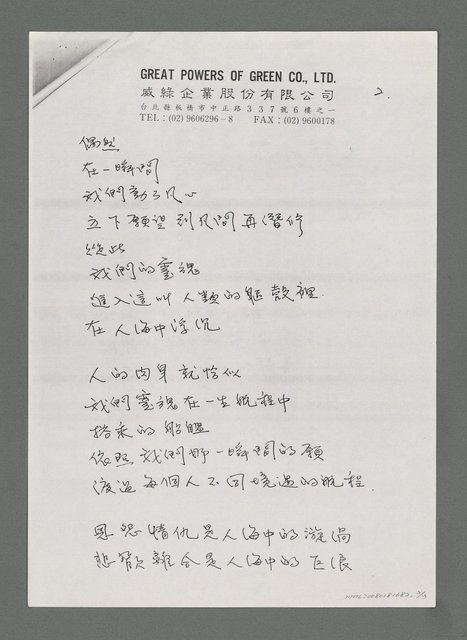 GREAT POWERS OF GREEN CO., LTD.
威綠企業股份有限公司
2.
台北縣板橋市中正路337號6樓之一
TEL:(02)9606296-8 FAX:(02)9600178
偶然
在一瞬間
我們動了凡心
立下願望到凡間再潛修
從此
我們的靈魂
進入這叫人類的軀殼裡.
在人海中浮沉
人的肉身就恰似
我們靈魂在一生航程中
搭乘的船艦
依照我們那一瞬間的願
渡過每個人不同境遇的航程.
恩怨情仇是人海中的漩渦
悲歡離合是人海中的巨浪